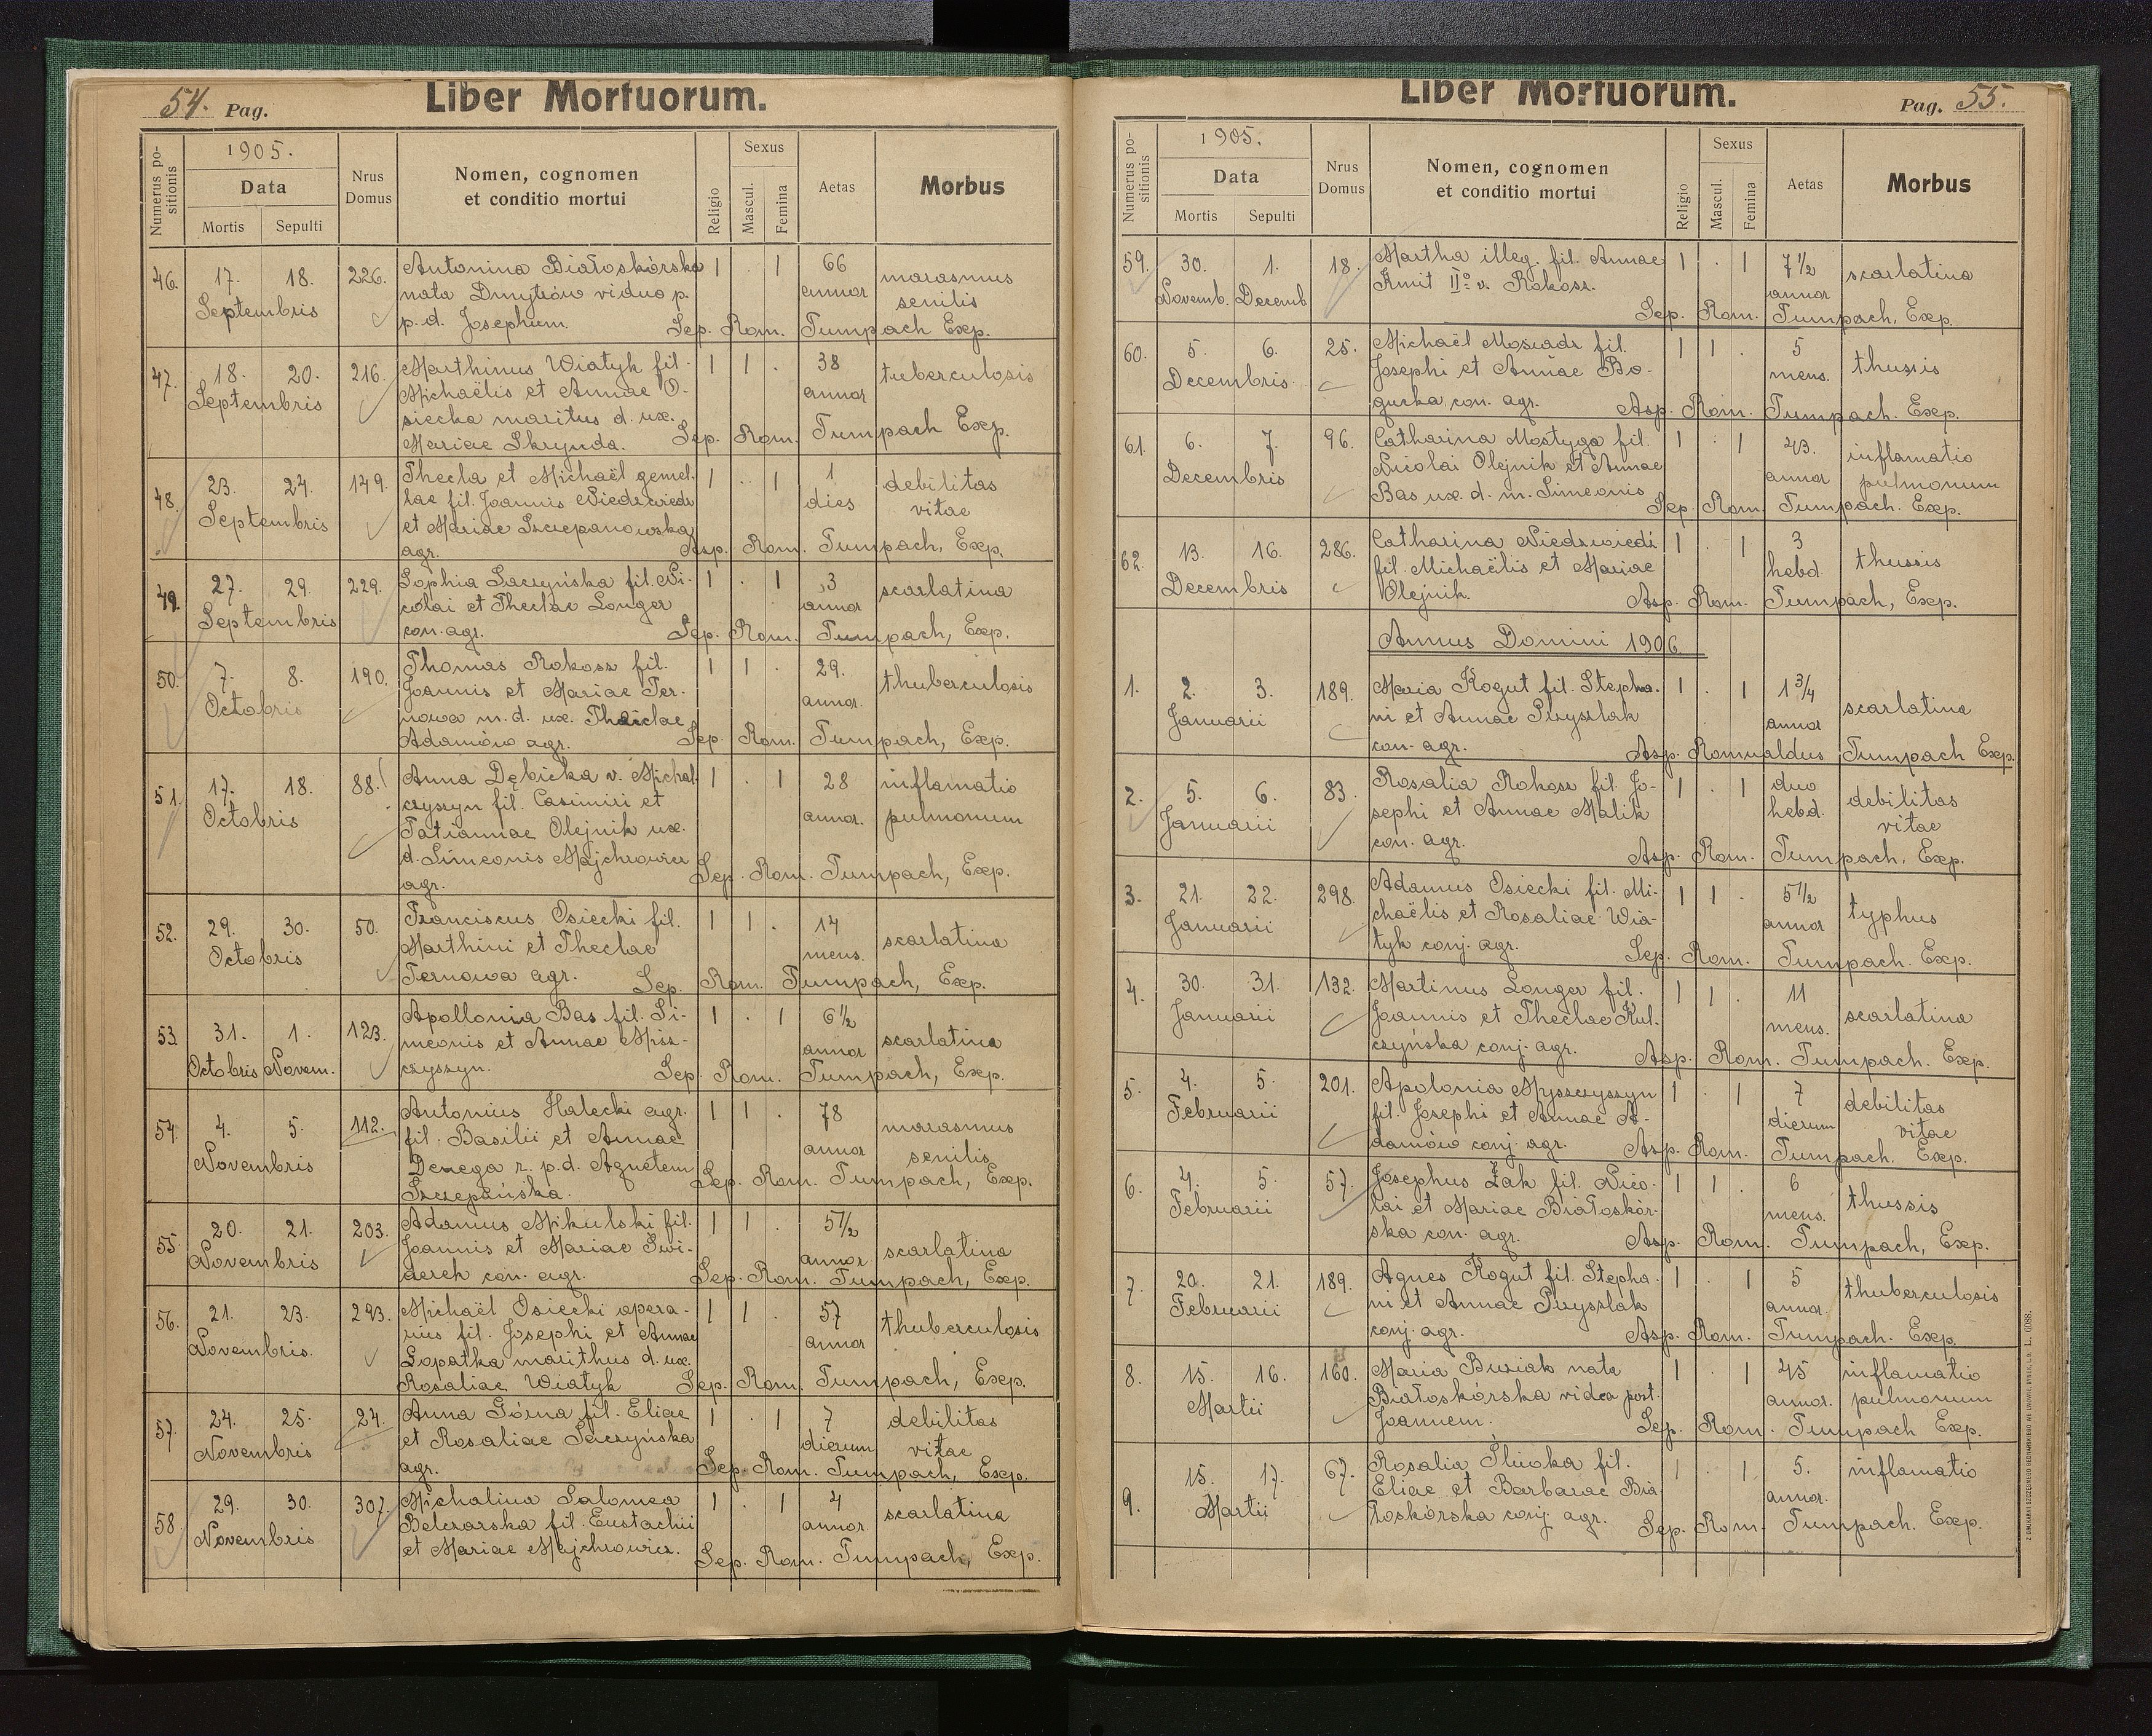 54. Pag.
Liber Mortuorum.
Numerus positionis
1905.
Data
Mortis
Sepulti
Nrus Domus
Nomen, cognomen
et conditio mortui
Religio
Sexus
Mascul.
Femina
Aetas
Morbus
46. 17. 18. 226. Antonina Białoskórska 1 . 1 66 marasmus
Septembris nata Dmytrów vidua p. annor senilis
p. d. Josephum. Sep. Rom. Tumpach Exp.
47. 18. 20. 216. Marthinus Wiatyk fil. 1 1 . 38 tuberculosis
Septembris Michaëlis et Annae O- annor
siecka maritus d. ux.
Mariae Skrynda. Sep. Rom. Tumpach Exp.
48. 23. 24. 149. Thecla et Michaël gemel- 1 . 1 1 debilitas
Septembris lae fil. Joannis Niedzwiedz dies vitae
et Mariae Szczepanowska
agr. Asp. Rom. Tumpach, Exp.
49. 27. 29. 229. Sophia Saczyńska fil. Ni- 1 . 1 3 scarlatina
Septembris colai et Theclae Longer annor
con. agr. Sep. Rom. Tumpach, Exp.
50. 7. 8. 190. Thomas Rokosz fil. 1 1 . 29. thuberculosis
Octobris Joannis et Mariae Ter- annor.
nowa m. d. ux. Theclae
Adamów agr. Sep. Rom. Tumpach, Exp.
51. 17. 18. 88. Anna Dębicka v. Michal- 1 . 1 28 inflamatio
Octobris czyszyn fil. Casimiri et annor. pulmonum
Tatiannae Olejnik ux.
d. Simeonis Majchrowicz
agr. Sep. Rom. Tumpach, Exp.
52. 29. 30. 50. Franciscus Osiecki fil. 1 1 . 14 scarlatina
Octobris Marthini et Theclae mens.
Ternowa agr. Sep. Rom. Tumpach, Exp.
53. 31. 1. 123. Apollonia Bas fil. Si- 1 . 1 6 1/2 scarlatina
Octobris Novem. meonis et Annae Misz- annor
czyszyn. Sep. Rom. Tumpach, Exp.
54. 4. 5. 112. Antonius Halecki agr. 1 1 . 78 marasmus
Novembris fil. Basilii et Annae annor senilis
Denega r. p. d. Agnetem
Szczepańska. Sep. Rom. Tumpach, Exp.
55. 20. 21. 203. Adamus Mikulski fil. 1 1 . 5 1/2 scarlatina
Novembris Joannis et Mariae Swi- annor
derek con. agr. Sep. Rom. Tumpach, Exp.
56. 21. 23. 293. Michaël Osiecki opera- 1 1 . 57 thuberculosis
Novembris. rius fil. Josephi et Annae annor
Łopatka marithus d. ux.
Rosaliae Wiatyk Sep. Rom. Tumpach, Exp.
57. 24. 25. 24. Anna Górna fil. Eliae 1 . 1 7 debilitas
Novembris et Rosaliae Saczyńska dierum vitae
agr. Sep. Rom. Tumpach, Exp.
58. 29. 30. 307. Michalina Salomea 1 . 1 4 scarlatina
Novembris Belczarska fil. Eustachii annor.
et Mariae Majchrowicz. Sep. Rom. Tumpach, Exp.
Liber Mortuorum.
Pag. 55.
Numerus positionis
1905.
Data
Mortis
Sepulti
Nrus Domus
Nomen, cognomen
et conditio mortui
Religio
Sexus
Mascul.
Femina
Aetas
Morbus
59. 30. 1. 18. Martha illeg. fil. Annae 1 . 1 7 1/2 scarlatina
Novemb. Decemb Kmit IIo v. Rokosz. annor
Sep. Rom. Tumpach, Exp.
60. 5. 6. 25. Michaël Moswadr fil. 1 1 . 5 thussis
Decembris. Josephi et Annae Bo- mens.
gucka con. agr. Asp. Rom. Tumpach. Exp.
61. 6. 7. 96. Catharina Mostyga fil. 1 . 1 43. inflamatio
Decembris Nicolai Olejnik et Annae annor pulmonum
Bas ux. d. m. Simeonis Sep. Rom. Tumpach. Exp.
62. 13. 16. 286. Catharina Niedzwiedz 1 . 1 3 thussis
Decembris fil. Michaëlis et Mariae hebd.
Olejnik. Asp. Rom. Tumpach, Exp.
Annus Domini 1906.
1. 2. 3. 189. Maria Kogut fil. Stepha- 1 . 1 1 3/4 scarlatina
Januarii ni et Annae Przyszlak annor
con. agr. Asp. Romualdus Tumpach Exp.
2. 5. 6. 83. Rosalia Rokosz fil. Jo- 1 . 1 duo debilitas
Januarii sephi et Annae Malik hebd. vitae
con. agr. Asp. Rom. Tumpach, Exp.
3. 21. 22. 298. Adamus Osiecki fil. Mi- 1 1 . 5 1/2 typhus
Januarii chaëlis et Rosaliae Wia- annor
tyk conj. agr. Sep. Rom. Tumpach. Exp.
4. 30. 31. 132. Martinus Longer fil. 1 1 . 11 scarlatina
Januarii Joannis et Theclae Kul- mens.
czyńska conj. agr. Asp. Rom. Tumpach. Exp.
5. 4. 5. 201. Apolonia Myszczyszyn 1 . 1 7 debilitas
Februarii fil. Josephi et Annae A- dierum vitae
damów conj. agr. Asp. Rom. Tumpach. Exp.
6. 4. 5. 57. Josephus Żak fil. Nico- 1 1 . 6 thussis
Februarii lai et Mariae Białoskór- mens.
ska con. agr. Asp. Rom. Tumpach, Exp.
7. 20. 21. 189. Agnes Kogut fil. Stepha- 1 . 1 5 thuberculosis
Februarii ni et Annae Przyszlak annor.
conj. agr. Asp. Rom. Tumpach. Exp.
8. 15. 16. 160. Maria Buziak nata 1 . 1 45 inflamatio
Martii Białoskórska vidua post. annor. pulmonum
Joannem. Sep. Rom. Tumpach Exp.
9. 15. 17. 67. Rosalia Śliwka fil. 1 . 1 5. inflamatio
Martii Eliae et Barbarae Bia- annor.
łoskórska conj. agr. Sep. Rom. Tumpach. Exp.